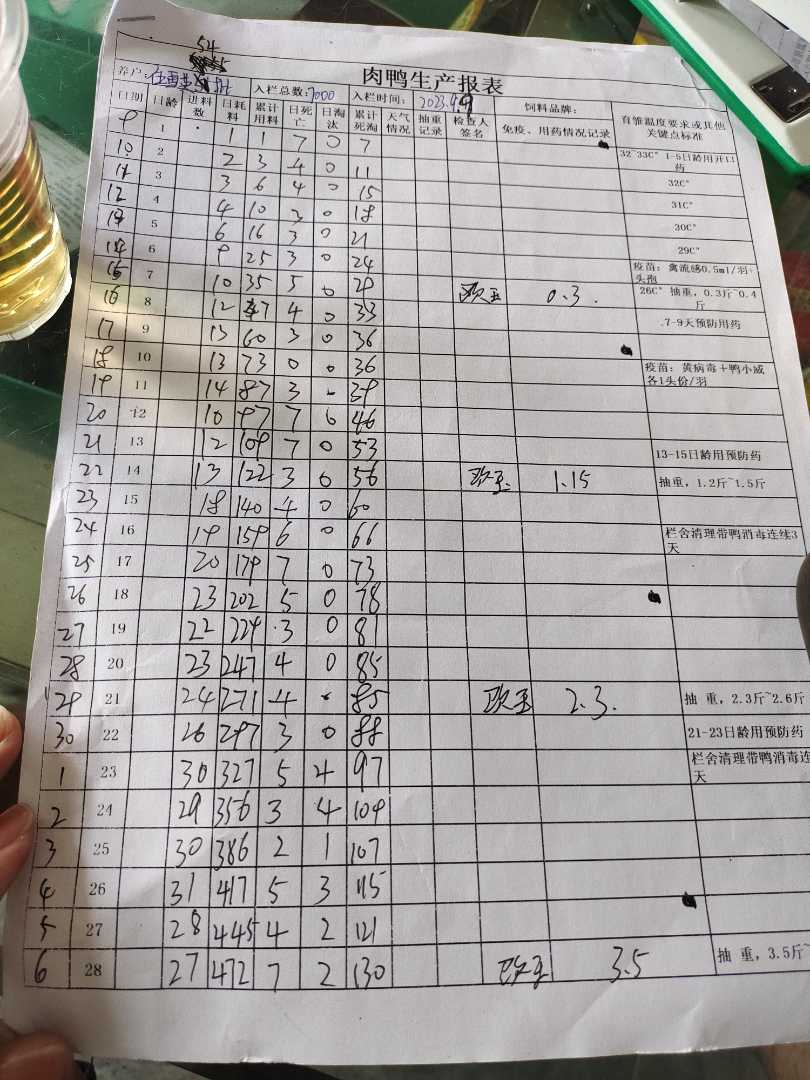 54
肉鸭生产报表
养户: 入栏总数:7000 入栏时间: 2023.4.9 饲料品牌:
日期 日龄 进料数 日耗料 累计用料 日死亡 日淘汰 累计死淘 天气情况 抽重记录 检查人签名 免疫、用药情况记录 育雏温度要求或其他关键点标准
9 1 1 1 7 0 7
10 2 2 3 4 0 11 32~33C° 1-5日龄用开口药
11 3 3 6 4 0 15 32C°
12 4 4 10 3 0 18 31C°
5 6 16 3 0 21 30C°
14 6 9 25 3 0 24 29C°
15 7 10 35 5 0 29 疫苗: 禽流感0.5ml/羽+头孢
16 8 12 47 4 0 33 0.3. 26C° 抽重, 0.3斤~0.4斤
17 9 13 60 3 0 36 .7-9天预防用药
18 10 13 73 0 0 36
19 11 14 87 3 - 39 疫苗: 黄病毒+鸭小威各1头份/羽
20 12 10 97 7 0 46
21 13 12 109 7 0 53
22 14 13 122 3 0 56 1.15 13-15日龄用预防药
23 15 18 140 4 0 60 抽重, 1.2斤~1.5斤
24 16 19 159 6 0 66
25 17 20 179 7 0 73 栏舍清理带鸭消毒连续3天
26 18 23 202 5 0 78
27 19 22 224 3 0 81
28 20 23 247 4 0 85
29 21 24 271 4 85 2.3. 抽 重, 2.3斤~2.6斤
30 22 26 297 3 0 88 21-23日龄用预防药
1 23 30 327 5 4 97 栏舍清理带鸭消毒连天
2 24 29 356 3 4 104
3 25 30 386 2 1 107
4 26 31 417 5 3 115
5 27 28 445 4 2 121
6 28 27 472 7 2 130 3.5 抽 重, 3.5斤~